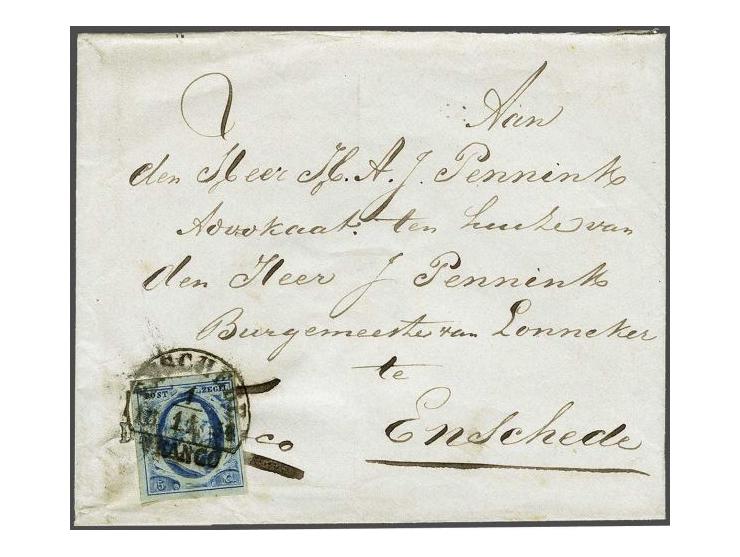 Aan
den Heer H. A. J. Pennink
Advokaat. ten huize van
den Heer J Pennink
Burgemeester van Lonneker
te
Enschede
POST ZEGEL
1
FRANCO
5 C.